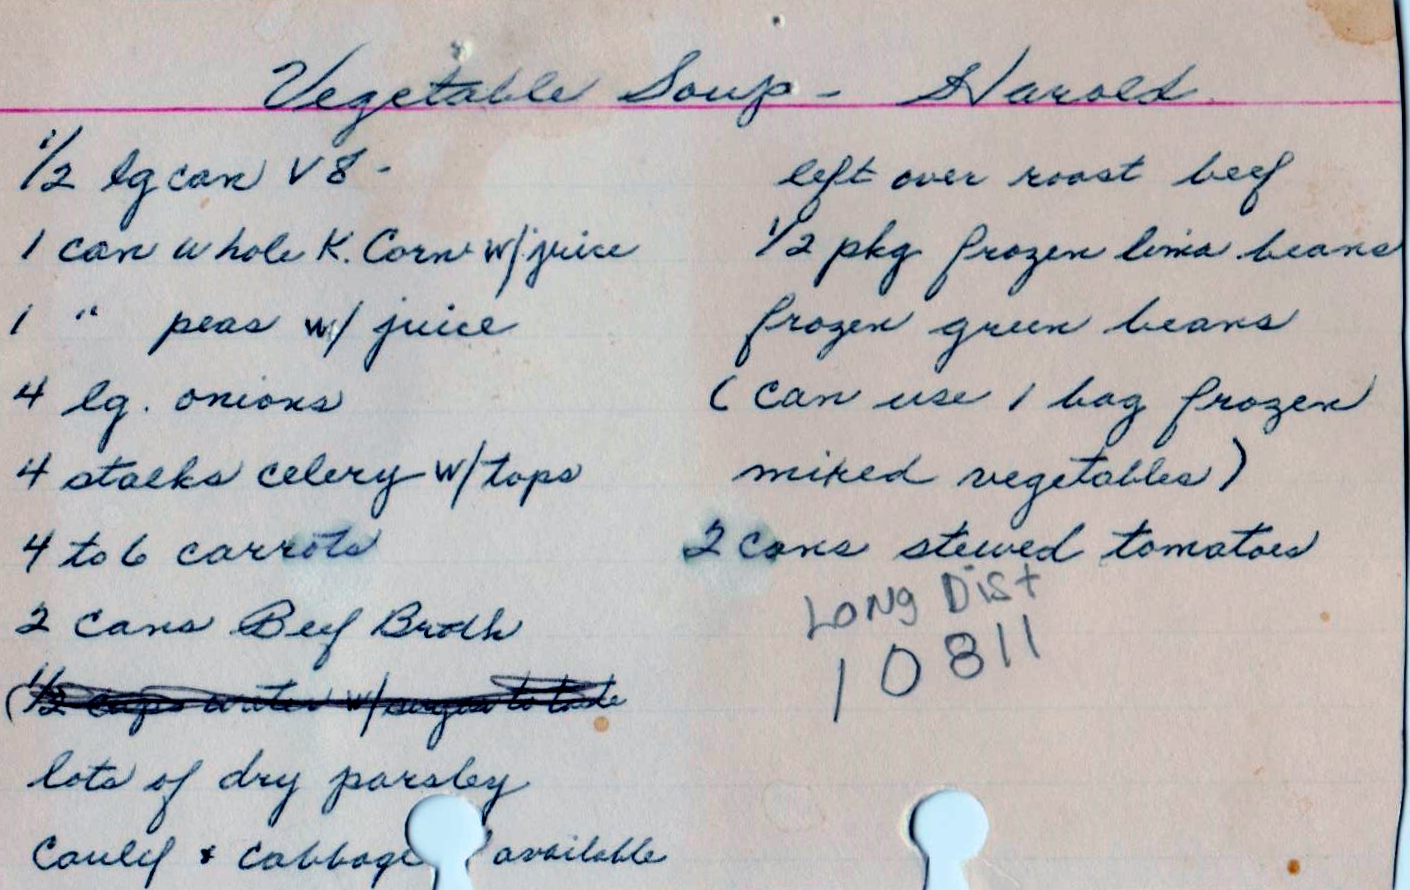 Vegetable Soup - Harold
1/2 lg can V8 -
1 can whole K. Corn w/juice
1 " peas w/ juice
4 lg. onions
4 stalks celery w/tops
4 to 6 carrots
2 cans Beef Broth
(1/2 cups water w/ to taste
lots of dry parsley
Caulif & Cabbage available
left over roast beef
1/2 pkg frozen lima beans
frozen green beans
(can use 1 bag frozen
mixed vegetables)
2 cans stewed tomatoes
Long Dist
10811